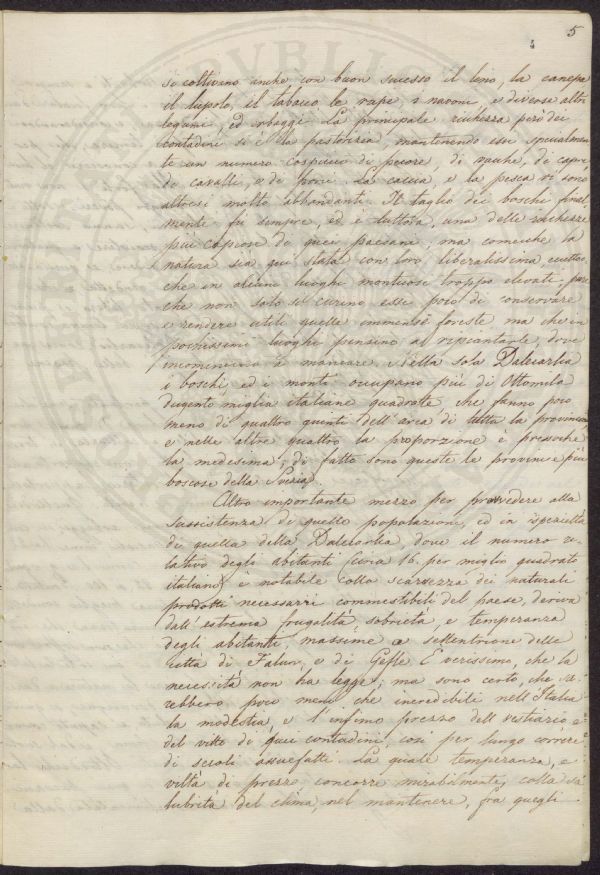 5
si coltivano anche con buon sucesso il lino, la canepa
il lupolo, il tabacco, le rape, i navoni, e diversi altri
legumi, ed erbaggi. La principale richezza però dei
contadini si è la pastorizia, mantenendo essi specialmen
te un numero cospicuo di pecore, di vache, di capre
di cavalli, e di porci. La caccia, e la pesca vi sono
altresi molto abbondanti. Il taglio dei boschi final
mente fù sempre, ed è tuttora, una delle richezze
più copiose di quei paesani; ma comeche la
natura sia qui stata con loro liberalissima, eccetto
che in alcuni luoghi montuosi troppo elevati; pure
che non solo si curino essi poco di conservare
e rendere utili quelle immense foreste ma che in
pochissimi luoghi pensino a ripiantarle, dove
incominciano a mancare. Nella sola Dalecarlia
i boschi ed i monti occupano più di Ottomila
dugento miglia italiane quadratte, che fanno poco
meno di quattro quinti dell'area di tutta la provincia
e nelle altre quattro la proporzione è pressoche
la medesima; di fatto sono queste le provincie più
boscose della Svezia.
Altro importante mezzo per provvedere alla
sussistenza di quelle popolazione, ed in ispezieltà
di quella della Dalecarlia, dove il numero re-
lativo degli abitanti (circa 16. per miglio quadrato
italiano) è notabile colla scarsezza dei naturali
prodotti necessarri commestibili del paese, deriva
dall'estrema frugalità, sobrietà, e temperanza
degli abitanti, massime a settentrione delle
città di Falun, e di Gefle È verissimo, che la
necessità non ha legge; ma sono certo, che sa-
rebbero poco men che incredibili nell'Italia
la modestia, e l'infimo prezzo dell vestiario e
del vitto di quei contadini, così per lungo correre
di secoli assuefatti. La quale temperanza, e
viltà di prezzo concorre mirabilmente, colla sa
lubrità del clima, nel mantenere, fra quegli